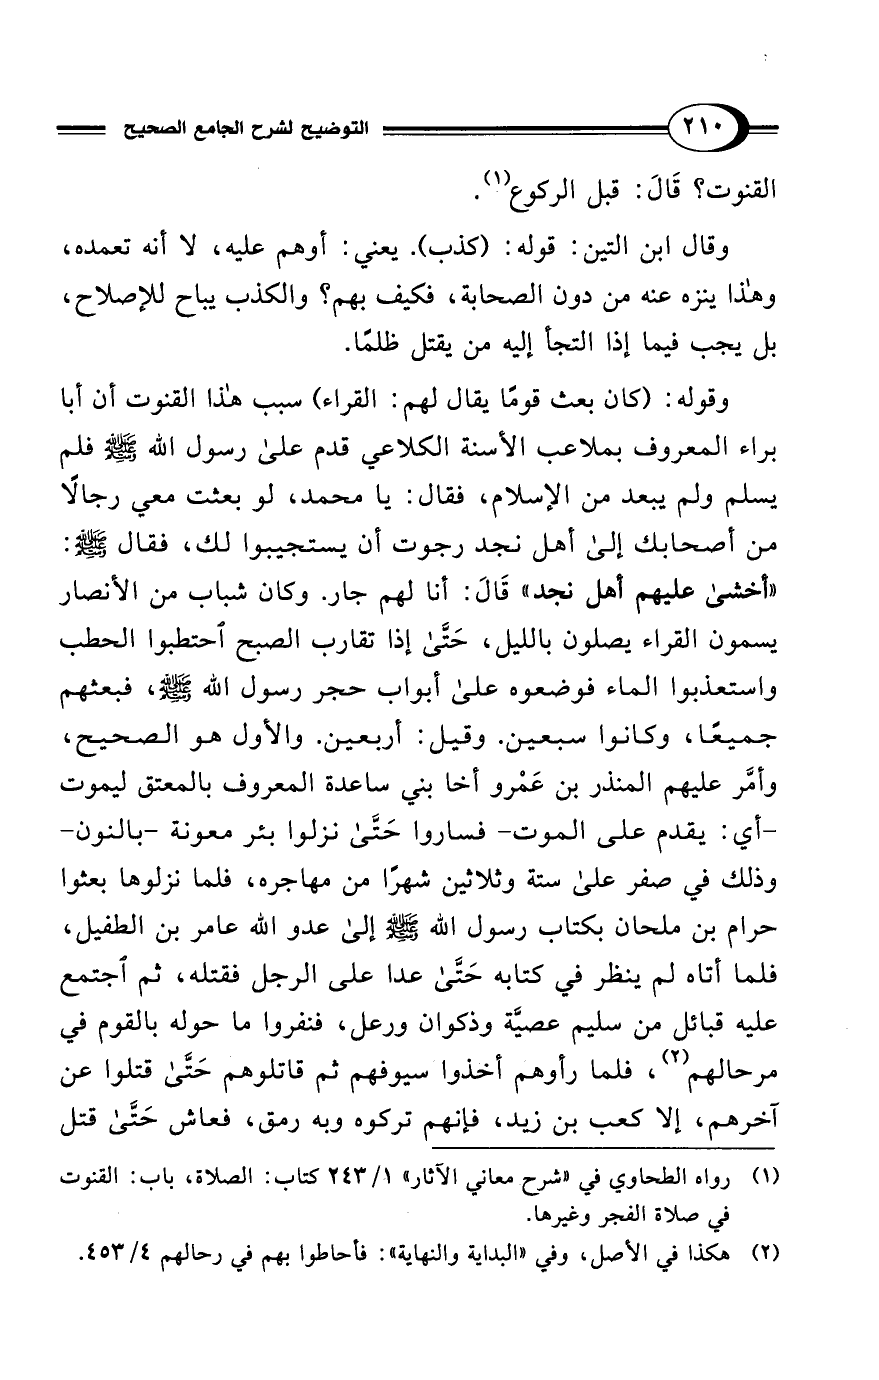 ٢١٠ التوضيح لشرح الجامع الصحيح
القنوت؟ قَالَ: قبل الركوع(١).
وقال ابن التين: قوله: (كذب). يعني: أوهم عليه، لا أنه تعمده،
وهٰذا ينزه عنه من دون الصحابة، فكيف بهم؟ والكذب يباح للإصلاح،
بل يجب فيما إذا التجأ إليه من يقتل ظلمًا.
وقوله: (كان بعث قومًا يقال لهم: القراء) سبب هٰذا القنوت أن أبا
براء المعروف بملاعب الأسنة الكلاعي قدم علىٰ رسول الله ﷺ فلم
يسلم ولم يبعد من الإسلام، فقال: يا محمد، لو بعثت معي رجالًا
من أصحابك إلىٰ أهل نجد رجوت أن يستجيبوا لك، فقال ﷺ:
«أخشىٰ عليهم أهل نجد» قَالَ: أنا لهم جار. وكان شباب من الأنصار
يسمون القراء يصلون بالليل، حَتَّىٰ إذا تقارب الصبح ٱحتطبوا الحطب
واستعذبوا الماء فوضعوه علىٰ أبواب حجر رسول الله ﷺ، فبعثهم
جميعًا، وكانوا سبعين. وقيل: أربعين. والأول هو الصحيح،
وأمَّر عليهم المنذر بن عَمْرو أخا بني ساعدة المعروف بالمعتق ليموت
-أي: يقدم على الموت- فساروا حَتَّىٰ نزلوا بئر معونة -بالنون-
وذلك في صفر علىٰ ستة وثلاثين شهرًا من مهاجره، فلما نزلوها بعثوا
حرام بن ملحان بكتاب رسول الله ﷺ إلىٰ عدو الله عامر بن الطفيل،
فلما أتاه لم ينظر في كتابه حَتَّىٰ عدا على الرجل فقتله، ثم ٱجتمع
عليه قبائل من سليم عصيَّة وذكوان ورعل، فنفروا ما حوله بالقوم في
مرحالهم(٢)، فلما رأوهم أخذوا سيوفهم ثم قاتلوهم حَتَّىٰ قتلوا عن
آخرهم، إلا كعب بن زيد، فإنهم تركوه وبه رمق، فعاش حَتَّىٰ قتل
(١) رواه الطحاوي في «شرح معاني الآثار» ٢٤٣/١ كتاب: الصلاة، باب: القنوت
في صلاة الفجر وغيرها.
(٢) هكذا في الأصل، وفي «البداية والنهاية»: فأحاطوا بهم في رحالهم ٤٥٣/٤.